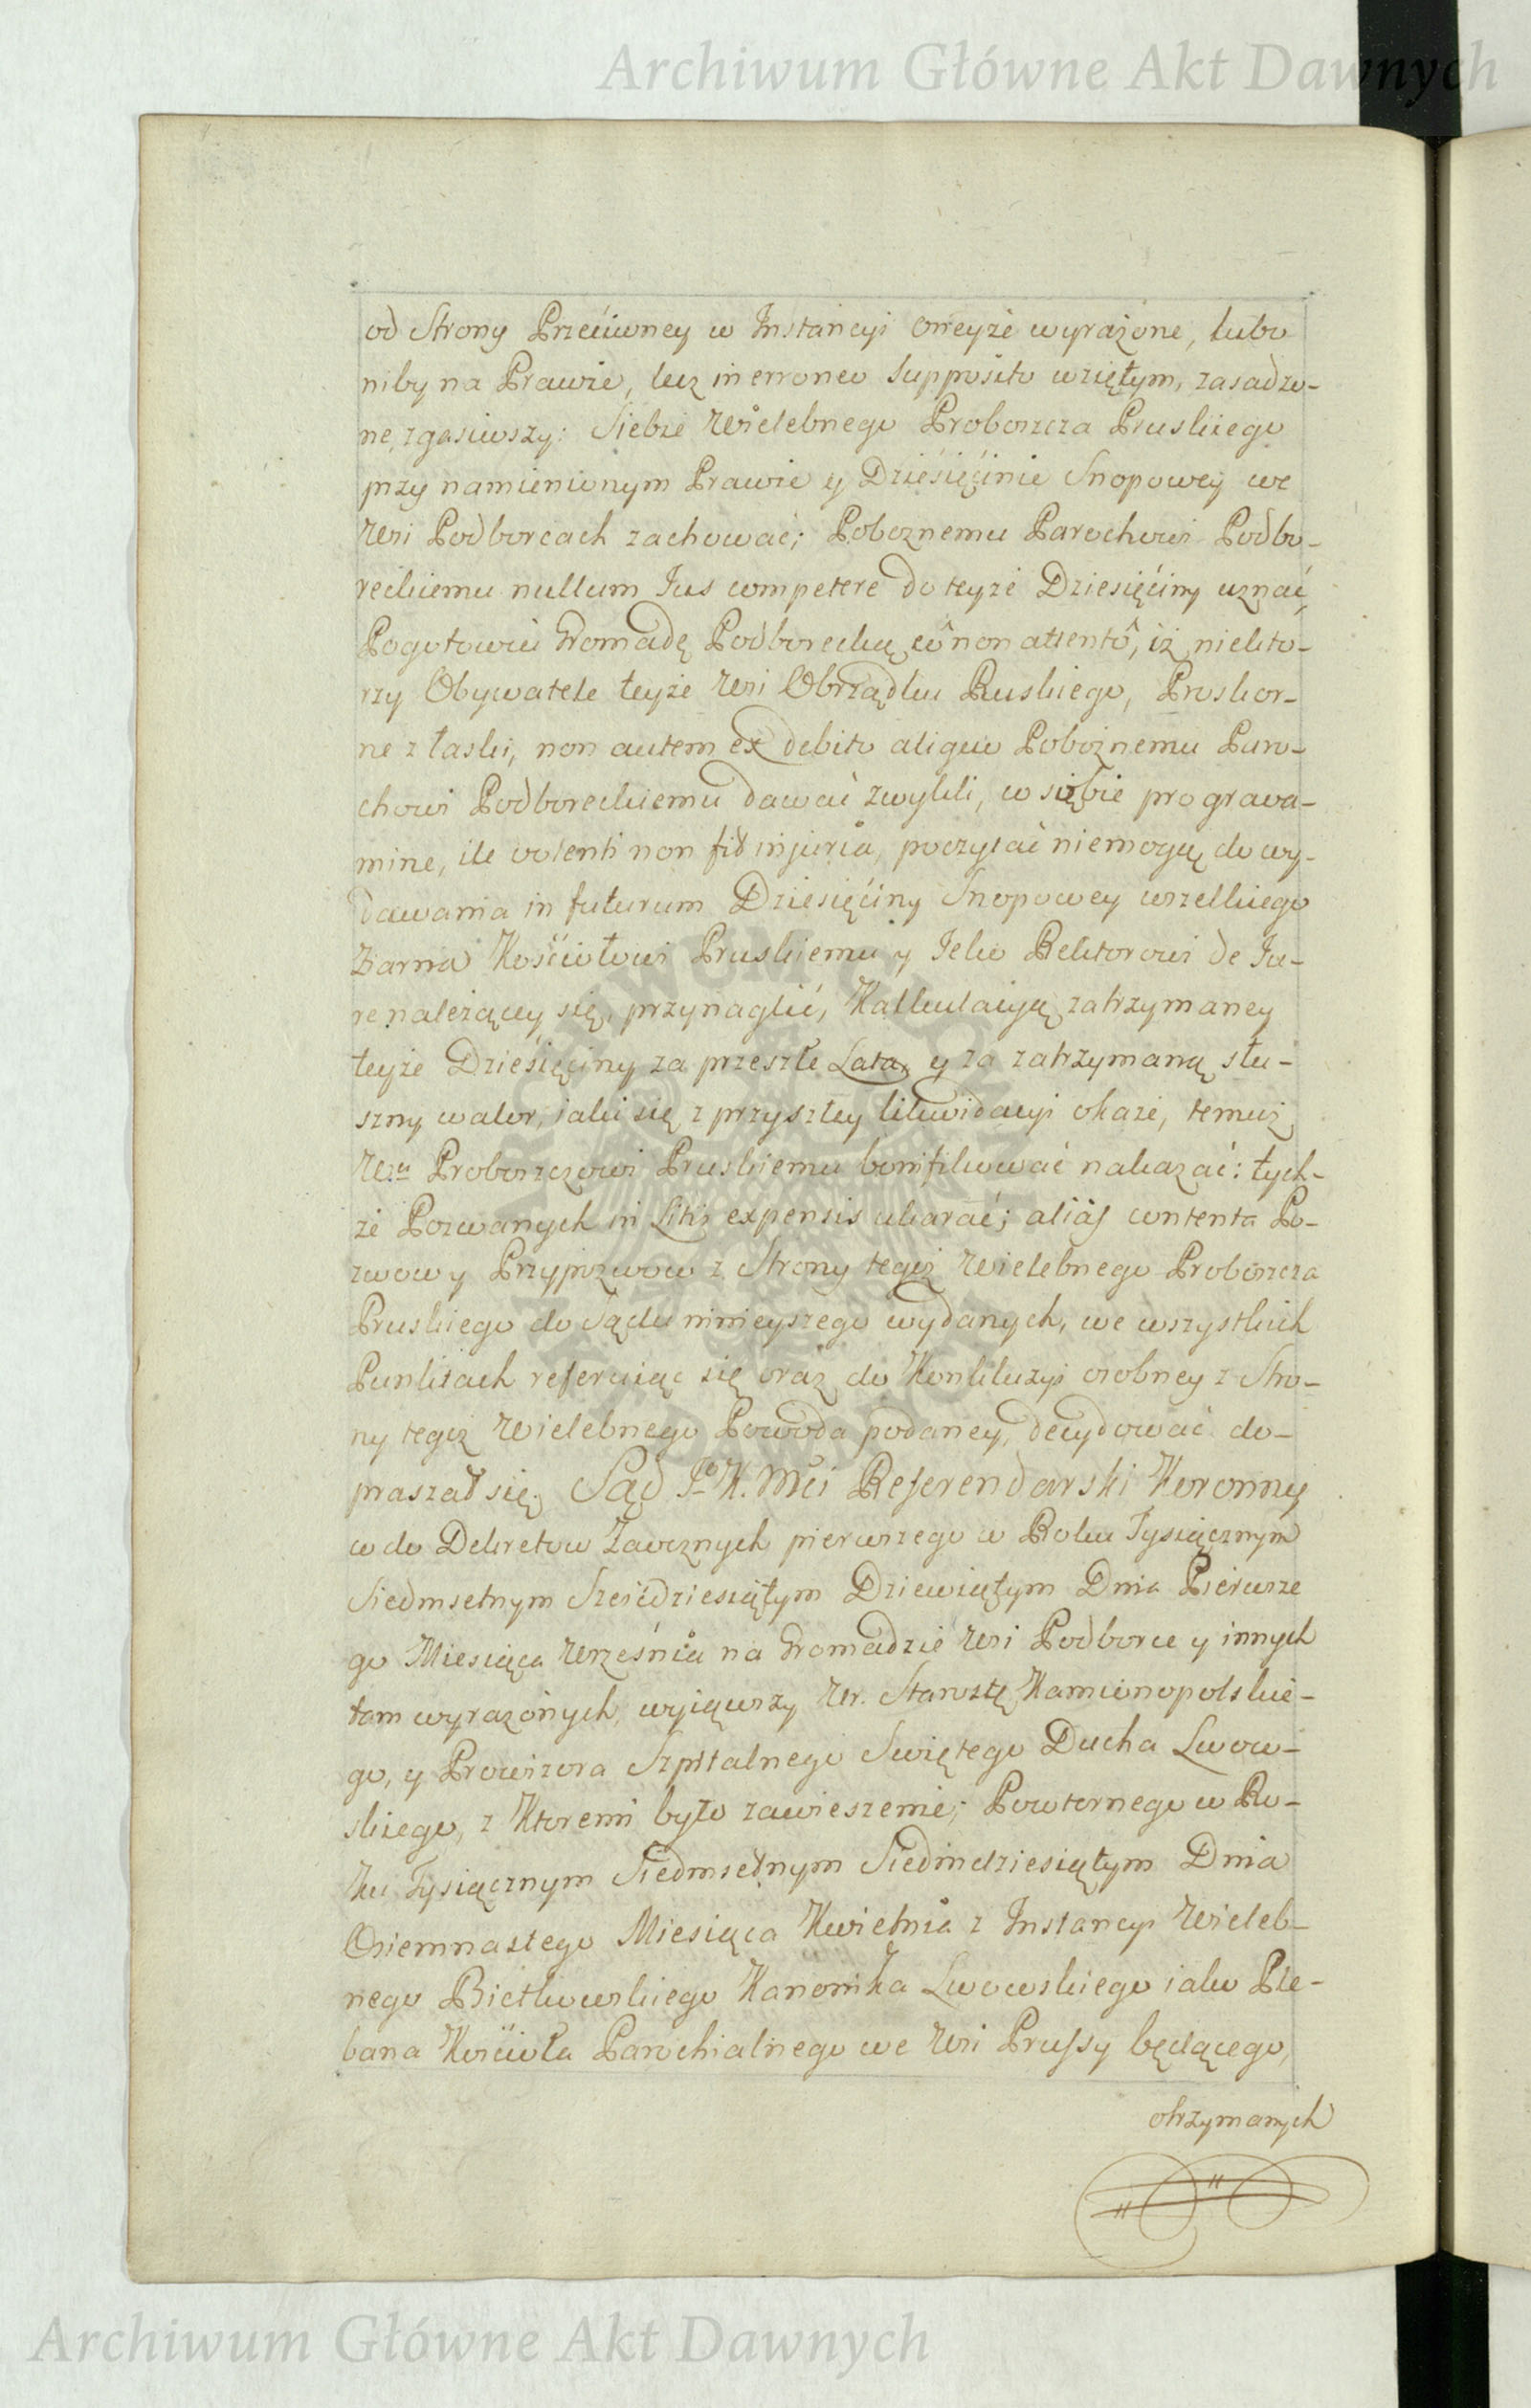 Archiwum Główne Akt Dawnych
od Strony Przeciwney w Instancyi oneyże wyrażone, lubo
niby na Prawie, lecz in erroneo supposito wziętym, zasadzo-
ne, zgasiwszy: Siebie Wielebnego Proboszcza Pruskiego
przy namienionym Prawie y Dziesięcinie Snopowey we
Wsi Podborcach zachować; Pobożnemu Parochowi Podbo-
reckiemu nullum Jus competere do teyże Dziesięciny uznać,
Pogotowiu Gromadę Podborecką, eô non attentô, iż niekto-
rzy Obywatele teyże Wsi Obrządku Ruskiego, Proskor-
ne z łaski, non autem ex debito aliquo Pobożnemu Paro-
chowi Podboreckiemu dawać zwykli, w siebie pro grava-
mine, ile volenti non fit injuria, poczytać niemogą, do wy-
dawania in futurum Dziesięciny Snopowey wszelkiego
Ziarna Kościołowi Pruskiemu y Jeko Rektorowi de Ju-
re należącey się, przynaglić, Kalkulacyą zatrzymaney
teyże Dziesięciny za przeszłe Lata, y za zatrzymaną słu-
szny walor, iaki się z przyszłey likwidacyi okaże, temuż
Wmu Proboszczowi Pruskiemu bonifikować nakazać: tych-
że Pozwanych in Litis expensis ukarać; aliàs contenta Po-
zwow y Przypozwow z Strony tegoż Wielebnego Proboszcza
Pruskiego do Sądu ninieyszego wydanych, we wszystkich
Punktach referuiąc się oraz do Konkluzyi osobney z Stro-
ny tegoż Wielebnego Powoda podaney, decydować do-
praszał się. Sąd Jo K. Mci Referendarski Koronny
co do Dekretow Zaocznych pierwszego w Roku Tysiącznym
Siedmsetnym Sześćdziesiątym Dziewiątym Dnia Pierwsze
go Miesiąca Września na Gromadzie Wsi Podborce y innych
tam wyrażonych, wyiąwszy Ur. Starostę Kamionopolskie-
go, y Prowizora Szpitalnego Swiętego Ducha Lwow-
skiego, z Ktoremi było zawieszenie; Powtornego w Ro-
ku Tysiącznym Siedmsetnym Siedmdziesiątym Dnia
Osiemnastego Miesiąca Kwietnia z Instancyi Wieleb-
nego Bietkowskiego Kanonika Lwowskiego iako Ple-
bana Kościoła Parochialnego we Wsi Prussy będącego,
otrzymanych
Archiwum Główne Akt Dawnych